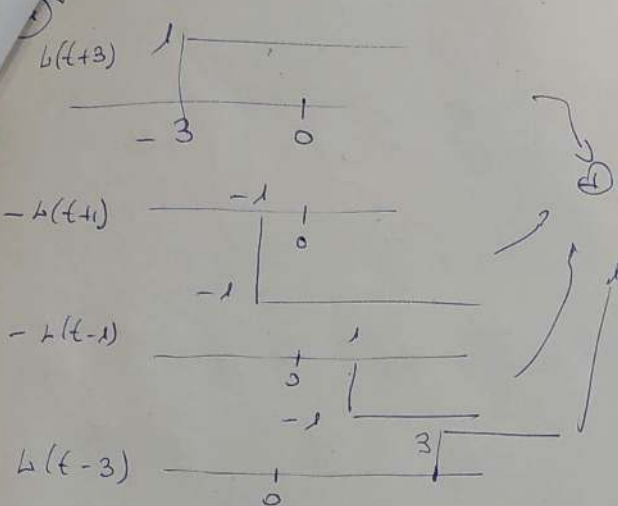 u(t+3) 1
-3 0
-u(t+1) -1
0
-1
-u(t-1) 1
0
-1
3
u(t-3)
0
+